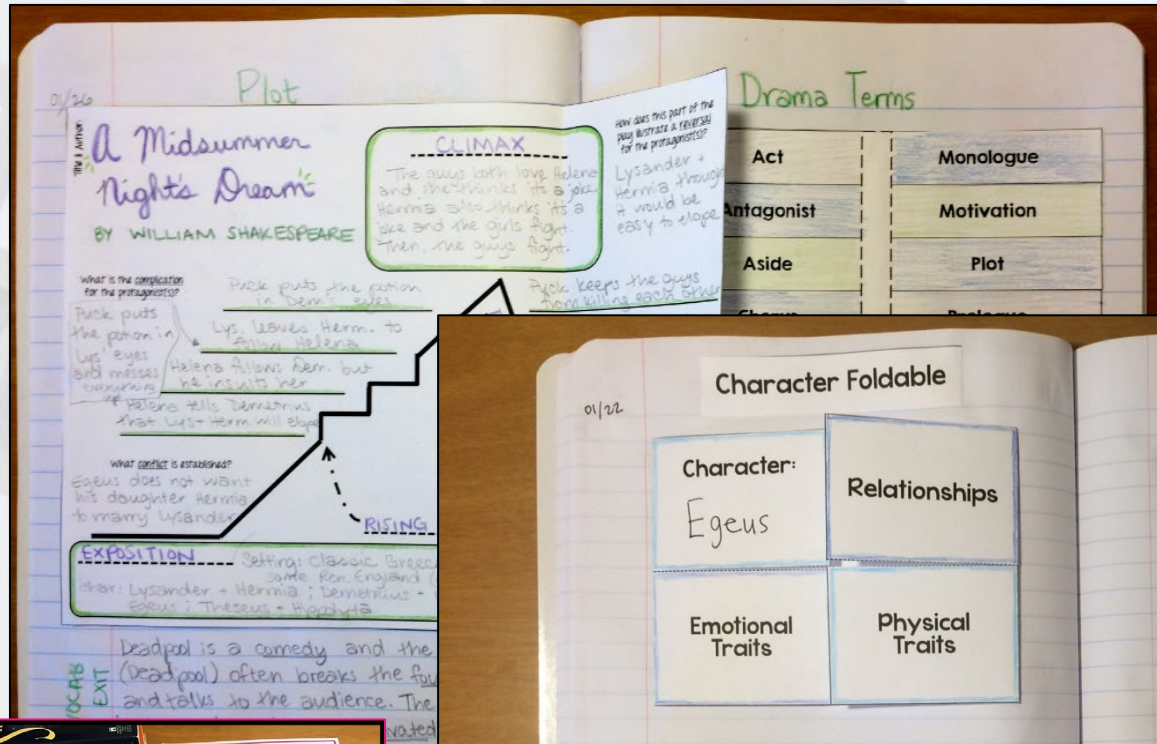 Plot
01/26
Title & Author:
A Midsummer
Night's Dream
BY WILLIAM SHAKESPEARE
CLIMAX
The guys both love Helena
and she thinks it's a joke.
Hermia also thinks it's a
joke and the girls fight.
Then, the guys fight.
How does this part of the
play illustrate a reversal
for the protagonist(s)?
Lysander +
Hermia though
it would be
easy to elope
What is the complication
for the protagonist(s)?
Puck puts
the potion in
Lys' eyes
and messes
everything
up
Puck puts the potion
in Dem's eyes
Lys. leaves Herm. to
follow Helena
Helena follows Dem. but
he insults her
Helena tells Demetrius
that Lys + Herm. will elope
Puck keeps the guys
from killing each other
What conflict is established?
Egeus does not want
his daughter Hermia
to marry Lysander
RISING
EXPOSITION
Setting: Classic Greec
some Ren. England
char: Lysander + Hermia ; Demetrius -
Egeus ; Theseus + Hippolyta
VOCAB
EXIT
Deadpool is a comedy and the
(Deadpool) often breaks the
and talks to the audience. The
vated
Drama Terms
Act
Antagonist
Aside
Chorus
Monologue
Motivation
Plot
Prologue
01/22
Character Foldable
Character:
Egeus
Relationships
Emotional
Traits
Physical
Traits